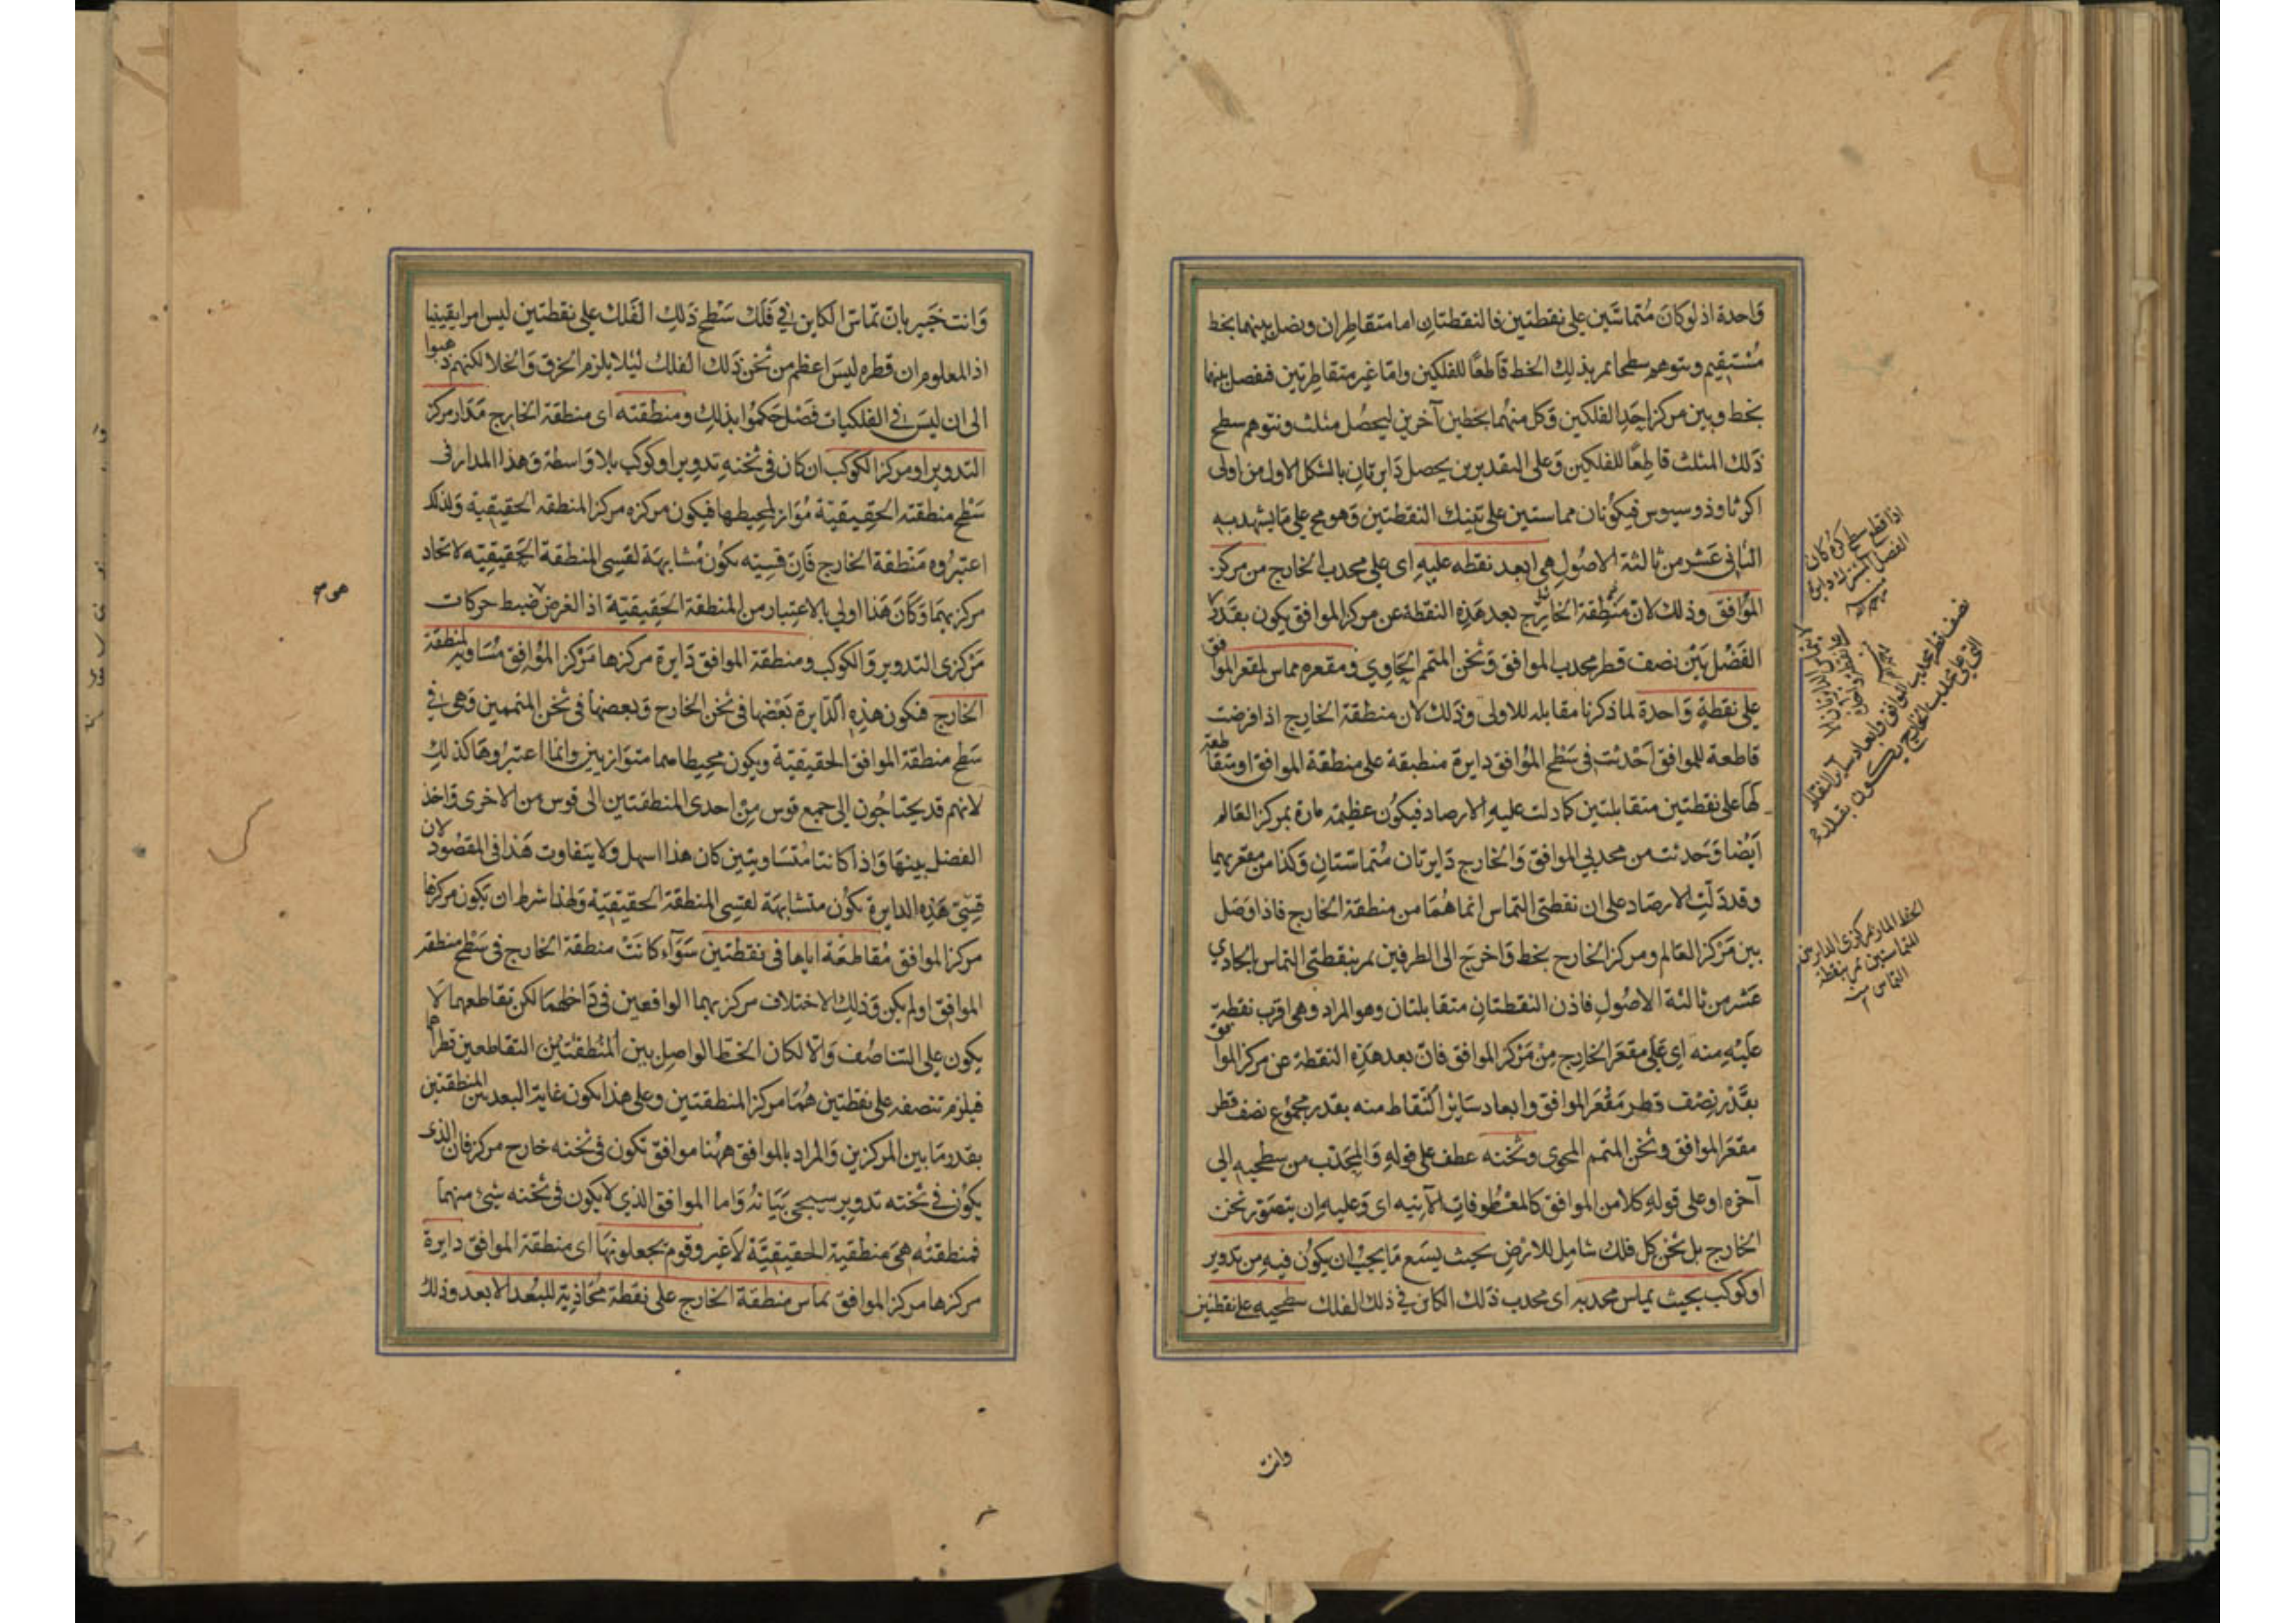 واحدة اذ لو كان متماسين على نقطتين فالنقطتان اما متقاطران ويصل بينهما بخط
مستقيم ويتوهم سطحا تمر بذلك الخط قاطعا للفلكين واما غير متقاطرتين فيفصل بينهما
بخط وبين مركز احد الفلكين وكل منهما بخطين آخرين ليحصل مثلث ونتوهم سطح
ذلك المثلث قاطعا للفلكين وعلى التقديرين يحصل دايرتان بالشكل الاول من اولى
اكر ثاوذوسيوس فيكونان مماستين على تينك النقطتين وهو مح على ما يشهد به
الثانى عشر من ثالثة الاصول هى ابعد نقطه عليه اى على محدب الخارج من مركز
الموافق وذلك لان منطقة الخارج بعد هذه النقطة عن مركز الموافق يكون بقدر
الفضل بين نصف قطر محدب الموافق وثخن المتمم الحاوي ومقعره مماس لمقعر الموافق
على نقطة واحدة لما ذكرنا مقابله للاولى وذلك لان منطقة الخارج اذا فرضت
قاطعة للموافق احدثت فى سطح الموافق دايرة منطبقة على منطقة الموافق او متقاطعة
لها على نقطتين متقابلتين كما دلت عليه الارصاد فيكون عظيمة مارة بمركز العالم
ايضا وحدثت من محدبي الموافق والخارج دايرتان متماستان وكذا من مقعريهما
وقد دلت الارصاد على ان نقطتى التماس انما هما من منطقة الخارج فاذا وصل
بين مركز العالم ومركز الخارج بخط واخرج الى الطرفين تمر بنقطتى التماس بالحادي
عشر من ثالثة الاصول فاذن النقطتان متقابلتان وهو المراد وهى اقرب نقطة
عليه منه اى على مقعر الخارج من مركز الموافق فان بعد هذه النقطة عن مركز الموافق
بقدر نصف قطر مقعر الموافق وابعاد ساير النقاط منه بقدر مجموع نصف قطر
مقعر الموافق وثخن المتمم المحوى وثخنه عطف على قوله والمحدب من سطحيه الى
آخره او على قوله كلا من الموافق كالمعطوفات الآتيه اى وعليه ان يتصور ثخن
الخارج بل ثخن كل فلك شامل للارض بحيث يسع ما يجب ان يكون فيه من تدوير
او كوكب بحيث يماس محدبه اى محدب ذلك الكاين فى ذلك الفلك سطحيه على نقطتين
اذا قطع سطح كرة كان
الفصل المشترك دايرة
نصف قطر محدب الموافق وابعاد ساير النقاط
التى على محدب الخارج يكون بقدره
الخط المار بمركزى الدايرتين
المتماستين تمر بنقطة
التماس
وانت
وانت خبير بان تماس الكاين في فلك سطح ذلك الفلك على نقطتين ليس امرا يقينيا
اذ المعلوم ان قطره ليس اعظم من ثخن ذلك الفلك ليلا يلزم الخرق والخلا لكنهم ذهبوا
الى ان ليس فى الفلكيات فضل حكموا بذلك ومنطقته اى منطقة الخارج مدار مركز
التدوير او مركز الكوكب ان كان فى ثخنه تدوير او كوكب بلا واسطة وهذا المدار فى
سطح منطقته الحقيقية مواز لمحيطها فيكون مركزه مركز المنطقه الحقيقية ولذلك
اعتبروه منطقة الخارج فان قسيه يكون مشابهة لقسى المنطقة الحقيقيه لاتحاد
مركزيهما وكان هذا اولي بالاعتبار من المنطقة الحقيقية اذ الغرض ضبط حركات
مركزى التدوير والكوكب ومنطقة الموافق دايرة مركزها مركز الموافق مساوية لمنطقة
الخارج فتكون هذه الدايرة بعضها فى ثخن الخارج وبعضها فى ثخن المتممين وهى في
سطح منطقة الموافق الحقيقية ويكون محيطاهما متوازيين وانما اعتبروها كذلك
لانهم قد يحتاجون الى جمع قوس من احدى المنطقتين الى قوس من الاخرى واخذ
الفضل بينها واذا كانتا متساويتين كان هذا اسهل ولا يتفاوت هذا فى المقصود لان
قسى هذه الدايرة يكون متشابهة لقسى المنطقة الحقيقية ولهذا شرط ان يكون مركزها
مركز الموافق مقاطعة اياها فى نقطتين سوآء كانت منطقة الخارج فى سطح منطقة
الموافق او لم يكن وذلك لاختلاف مركزيهما الواقعين فى داخلهما لكن تقاطعهما لا
يكون على التناصف والا لكان الخط الواصل بين المنطقتين التقاطعين قطرا لهما
فيلزم تنصفه على نقطتين هما مركز المنطقتين وعلى هذا يكون غاية البعد بين المنطقتين
بقدر ما بين المركزين والمراد بالموافق ههنا موافق تكون فى ثخنه خارج مركز فان الذى
يكون فى ثخنه تدوير سيجى بيانه واما الموافق الذي لا يكون فى ثخنه شئ منهما
فمنطقته هى منطقية الحقيقية لا غير وقوم يجعلونها اى منطقة الموافق دايرة
مركزها مركز الموافق تماس منطقة الخارج على نقطة محاذية للبعد الابعد وذلك